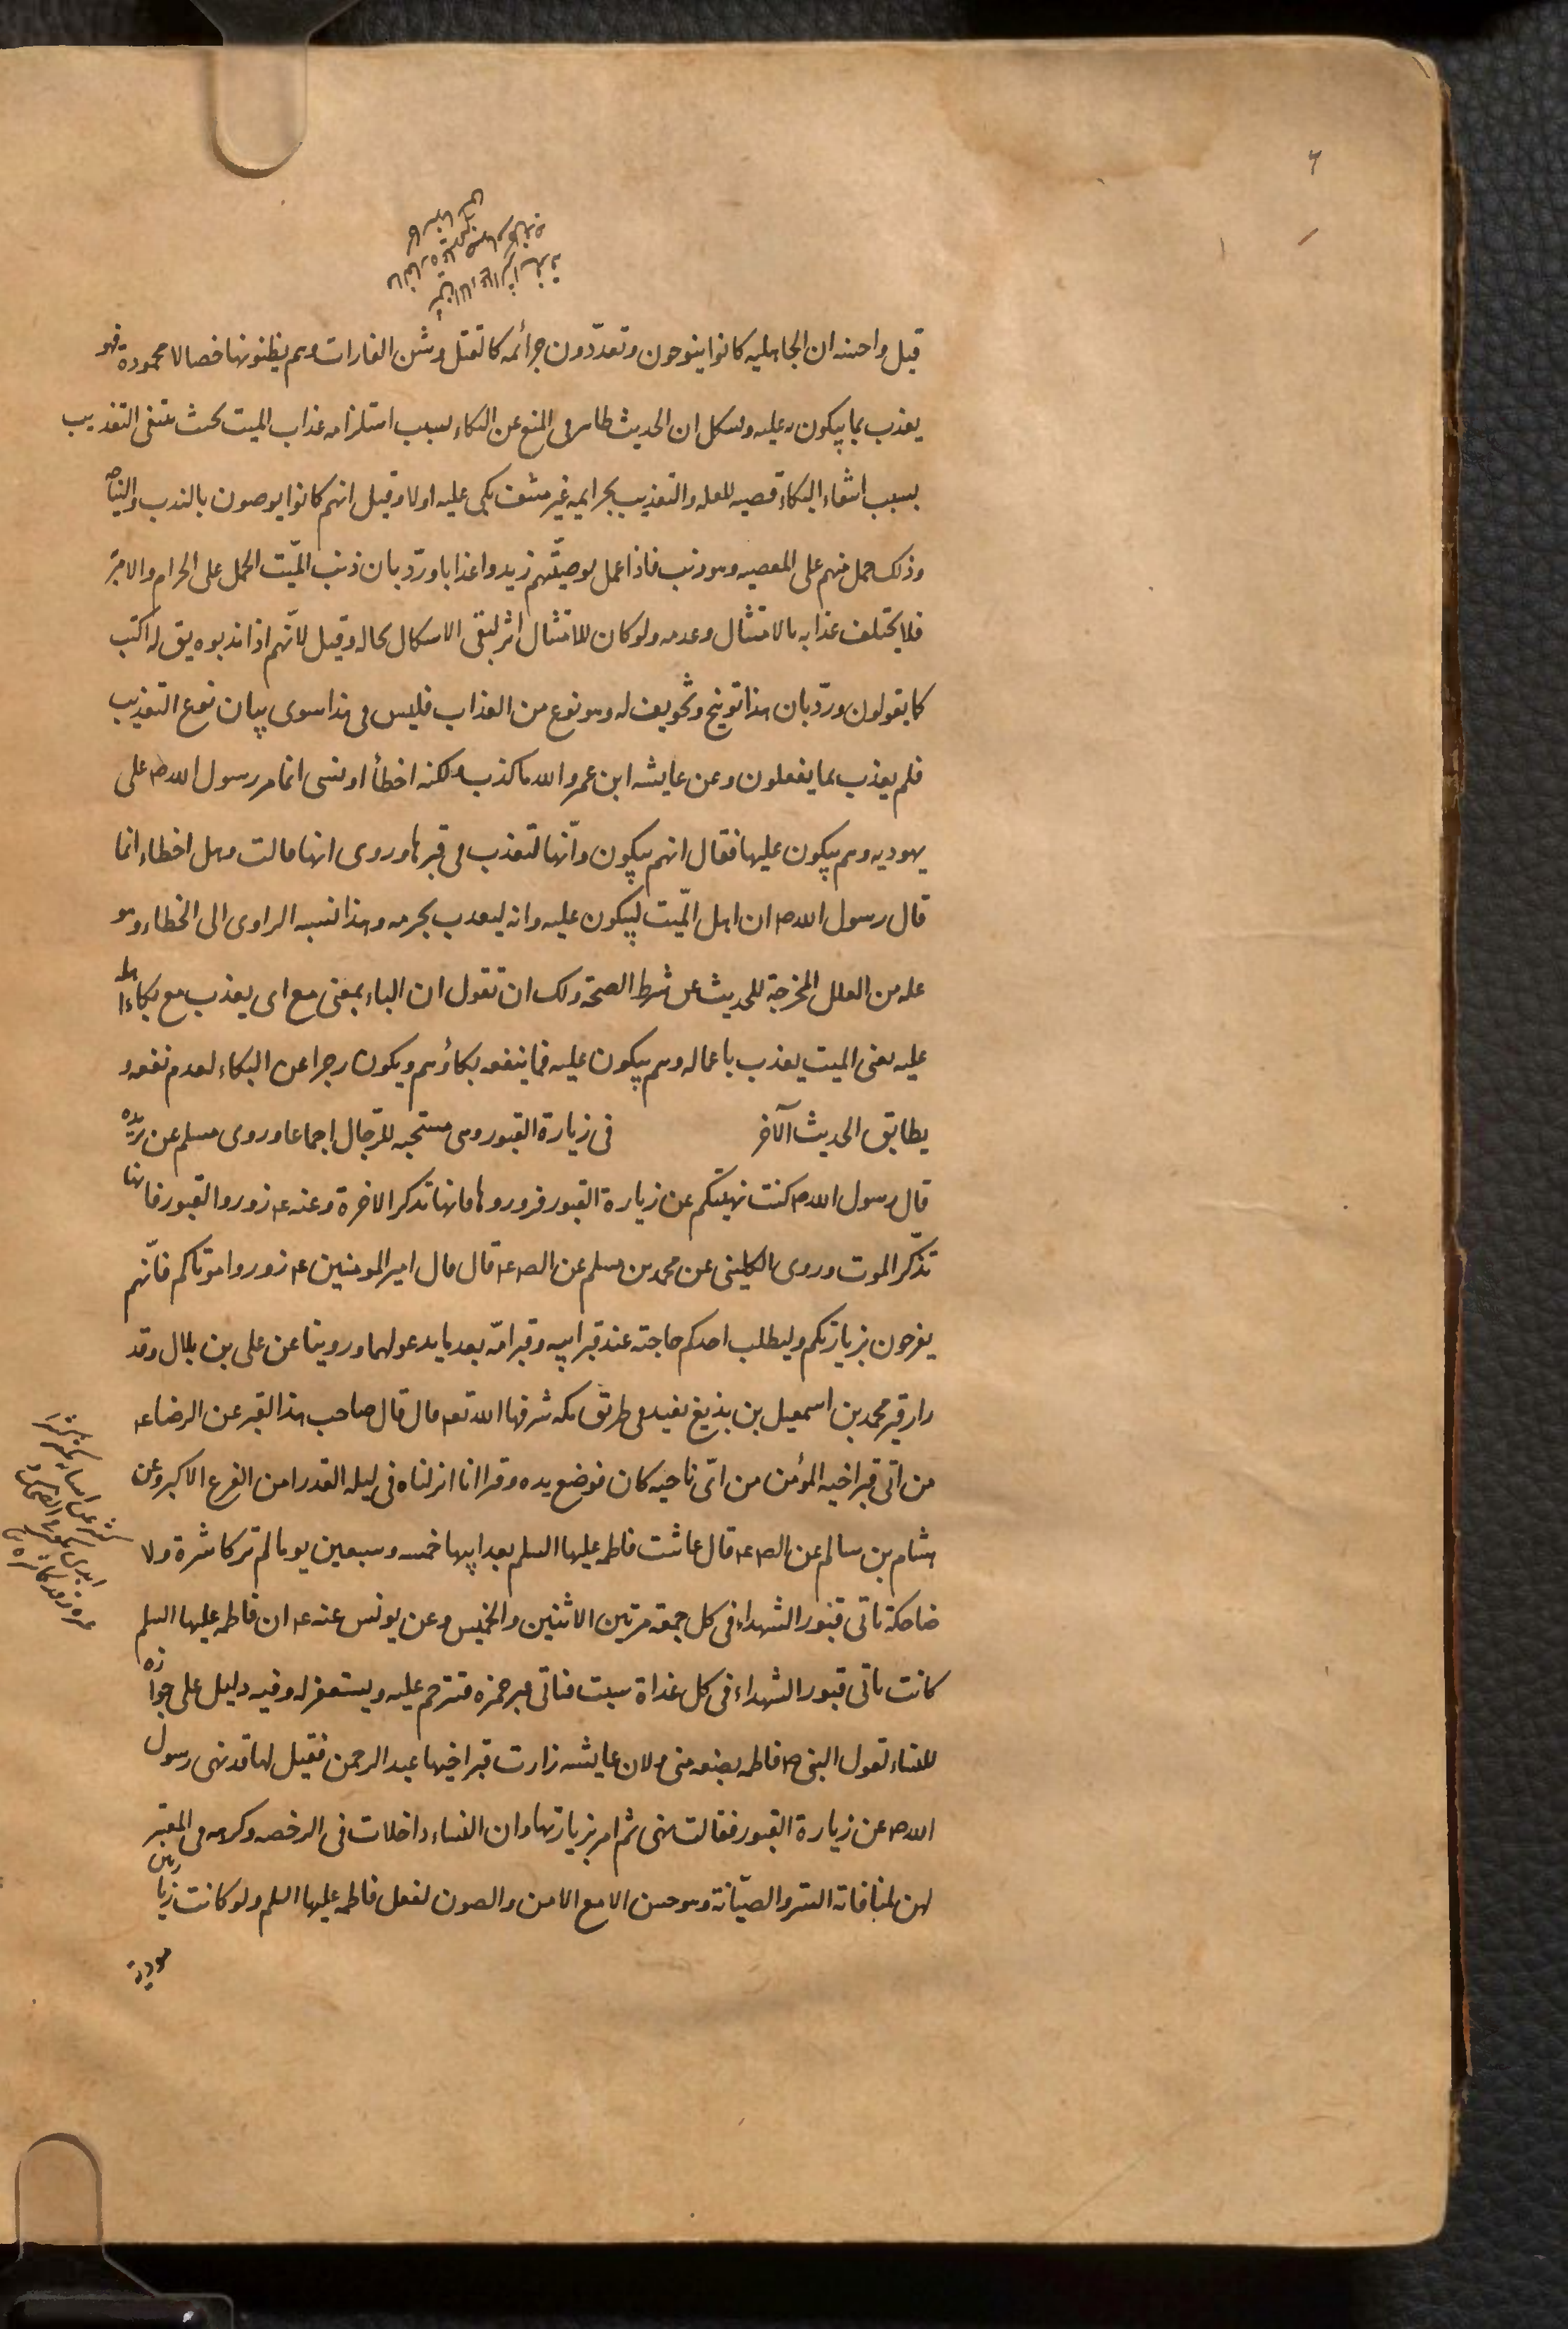 قيل واحسنه ان الجاهليه كانوا ينوحون وتعددون جرائمه كالقتل وشن الغارات وهم يظنونها خصالا محمودة فهو
يعذب بما يبكون به عليه ويشكل ان الحديث ظاهر فى المنع عن البكاء بسبب استلزامه عذاب الميت بحيث ينتفى التعذيب
بسبب انتفاء البكاء قضيه للعله والتعذيب بجرايمه غير منتف بكى عليه اولا وقيل انهم كانوا يوصون بالندب والنياحة
وذلك حمل منهم على المعصيه وهو ذنب فاذا عمل بوصيّتهم زيدوا عذابا وردّ بان ذنب الميّت الحمل على الحرام والامر به
فلا يختلف عذابه بالامتثال وعدمه ولو كان للامتثال اثر لبقى الاشكال بحاله وقيل لانّهم اذا ندبوه يق له اكنت
كما يقولون وردّ بان هذا توبيخ وتخويف له وهو نوع من العذاب فليس فى هذا سوى بيان نوع التعذيب
فلم يعذب بما يفعلون وعن عايشه ابن عمر والله ما كذب ولكنه اخطأ او نسى انما مر رسول الله ص على
يهوديه وهم يبكون عليها فقال انهم يبكون وانّها لتعذب فى قبرها وروى انها قالت وهل اخطاء انما
قال رسول الله ص ان اهل الميّت ليبكون عليه وانه ليعذب بجرمه وهذا نسبه الراوى الى الخطاء وهو
عله من العلل المخرجة للحديث عن شرط الصحة ولك ان تقول ان الباء بمعنى مع اى يعذب مع بكاء اهله
عليه يعنى الميت يعذب باعماله وهم يبكون عليه فما ينفعه بكاؤهم ويكون زجرا عن البكاء لعدم نفعه و
يطابق الحديث الآخر فى زيارة القبور وهى مستحبه للرّجال اجماعا وروى مسلم عن بريده
قال رسول الله ص كنت نهيتكم عن زيارة القبور فزوروها فانها تذكر الاخرة وعنه ع زوروا القبور فانها
تذكّر الموت وروى الكلينى عن محمد بن مسلم عن الص ع قال قال امير المومنين ع زوروا موتاكم فانّهم
يفرحون بزيارتكم وليطلب احدكم حاجته عند قبر ابيه وقبر امّه بعد ما يدعو لهما وروينا عن على بن بلال وقد
زار قبر محمد بن اسمعيل بن بزيع بفيد فى طريق مكه شرفها الله تعه قال قال صاحب هذا القبر عن الرضا ع
من اتى قبر اخيه المؤمن من اىّ ناحيه كان فوضع يده وقرا انا انزلناه فى ليله القدر امن الفزع الاكبر وعن
هشام بن سالم عن الص ع قال عاشت فاطمه عليها السلم بعد ابيها خمسه وسبعين يوما لم تر كاشرة ولا
ضاحكة تاتى قبور الشهداء فى كل جمعة مرتين الاثنين والخميس وعن يونس عنه ع ان فاطمه عليها السلم
كانت تاتى قبور الشهداء فى كل غداة سبت فتاتى قبر حمزه فتترحم عليه ويستغفر له وفيه دليل على جوازه
للنساء لقول النبى ص فاطمه بضعه منى ولان عايشه زارت قبر اخيها عبد الرحمن فقيل لها قد نهى رسول
الله ص عن زيارة القبور فقالت نهى ثم امر بزيارتها وان النساء داخلات فى الرخصه وكرهه فى المعتبر
لهن لمنافاته الستر والصيّانة وهو حسن الا مع الامن والصون لفعل فاطمه عليها السلم ولو كانت زيارتهن
مودية